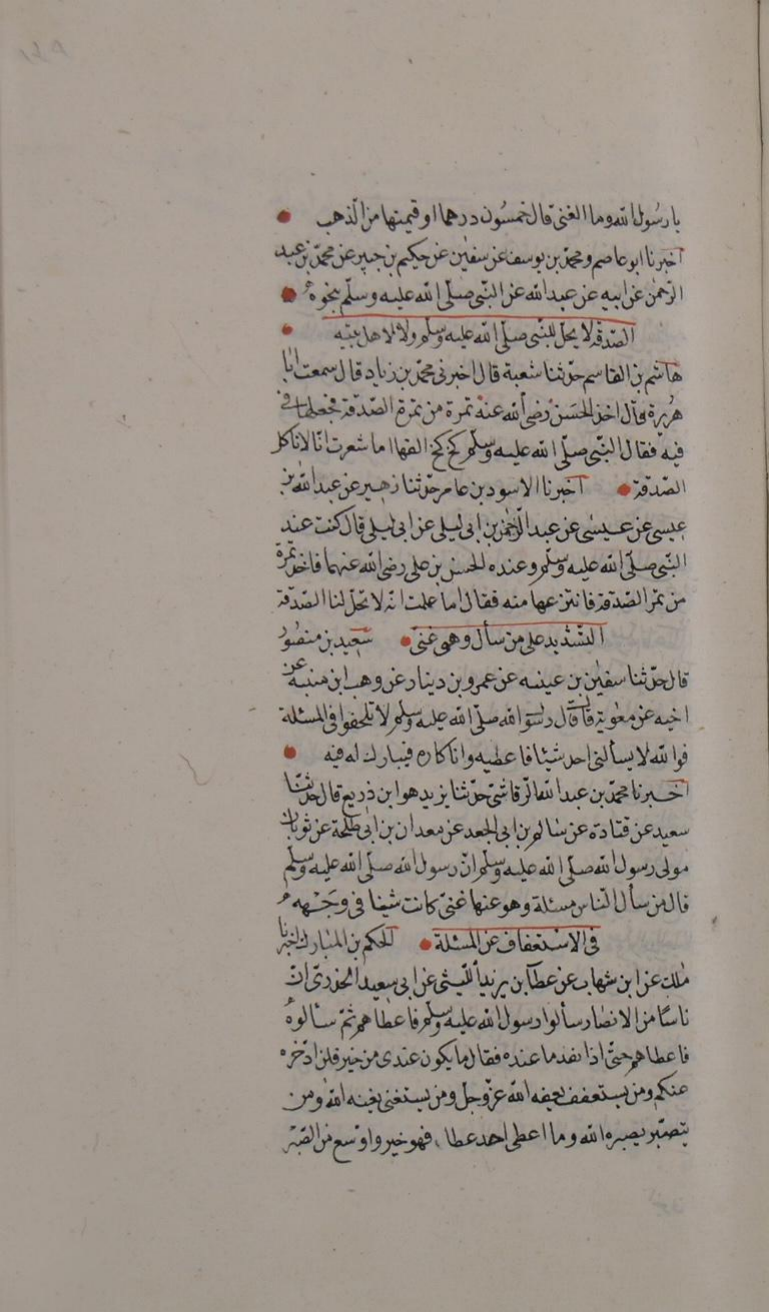 يا رسول الله وما الغنى قال خمسون درهما او قيمتها من الذهب
اخبرنا ابو عاصم ومحمد بن يوسف عن سفين عن حكيم بن جبير عن محمد بن عبد
الرحمن عن ابيه عن عبد الله عن النبي صلى الله عليه وسلم بنحوه
الصدقة لا يحل للنبي صلى الله عليه وسلم ولا لاهل بيته
هاشم بن القاسم حدثنا شعبة قال اخبرني محمد بن زياد قال سمعت ابا
هريرة قال اخذ الحسن رضي الله عنه تمرة من تمرة الصدقة فجعلها في
فيه فقال النبي صلى الله عليه وسلم كخ كخ القها اما شعرت انا لا ناكل
الصدقة اخبرنا الاسود بن عامر حدثنا زهير عن عبد الله بن
عيسى عن عيسى عن عبد الرحمن بن ابي ليلى عن ابي ليلى قال كنت عند
النبي صلى الله عليه وسلم وعنده الحسن بن علي رضي الله عنهما فاخذ تمرة
من تمر الصدقة فانتزعها منه فقال اما علمت انه لا تحل لنا الصدقة
التشديد على من سأل وهو غنى سعيد بن منصور
قال حدثنا سفين بن عينه عن عمرو بن دينار عن وهب ابن منبه عن
اخيه عن معوية قال قال رسول الله صلى الله عليه وسلم لا تلحفوا في المسئلة
فوالله لا يسألني احد شيئا فاعطيه وانا كاره فيبارك له فيه
اخبرنا محمد بن عبد الله الرقاشي حدثنا يزيد هو ابن ذريع قال حدثنا
سعيد عن قتادة عن سالم بن ابي الجعد عن معدان بن ابي طلحة عن ثوبان
مولى رسول الله صلى الله عليه وسلم ان رسول الله صلى الله عليه وسلم
قال من سأل الناس مسئلة وهو عنها غنى كانت شينا في وجهه
في الاستعفاف عن المسئلة الحكم بن المبارك اخبرنا
ملك عن ابن شهاب عن عطا بن يزيد الليثي عن ابي سعيد الخدري ان
ناسا من الانصار سألوا رسول الله عليه وسلم فاعطاهم ثم سألوه
فاعطاهم حتى اذا نفد ما عنده فقال ما يكون عندي من خير فلن ادخره
عنكم ومن يستعفف يعفه الله عز وجل ومن يستغنى يغنه الله ومن
يتصبر يصبره الله وما اعطى احد عطاء فهو خير واوسع من الصبر